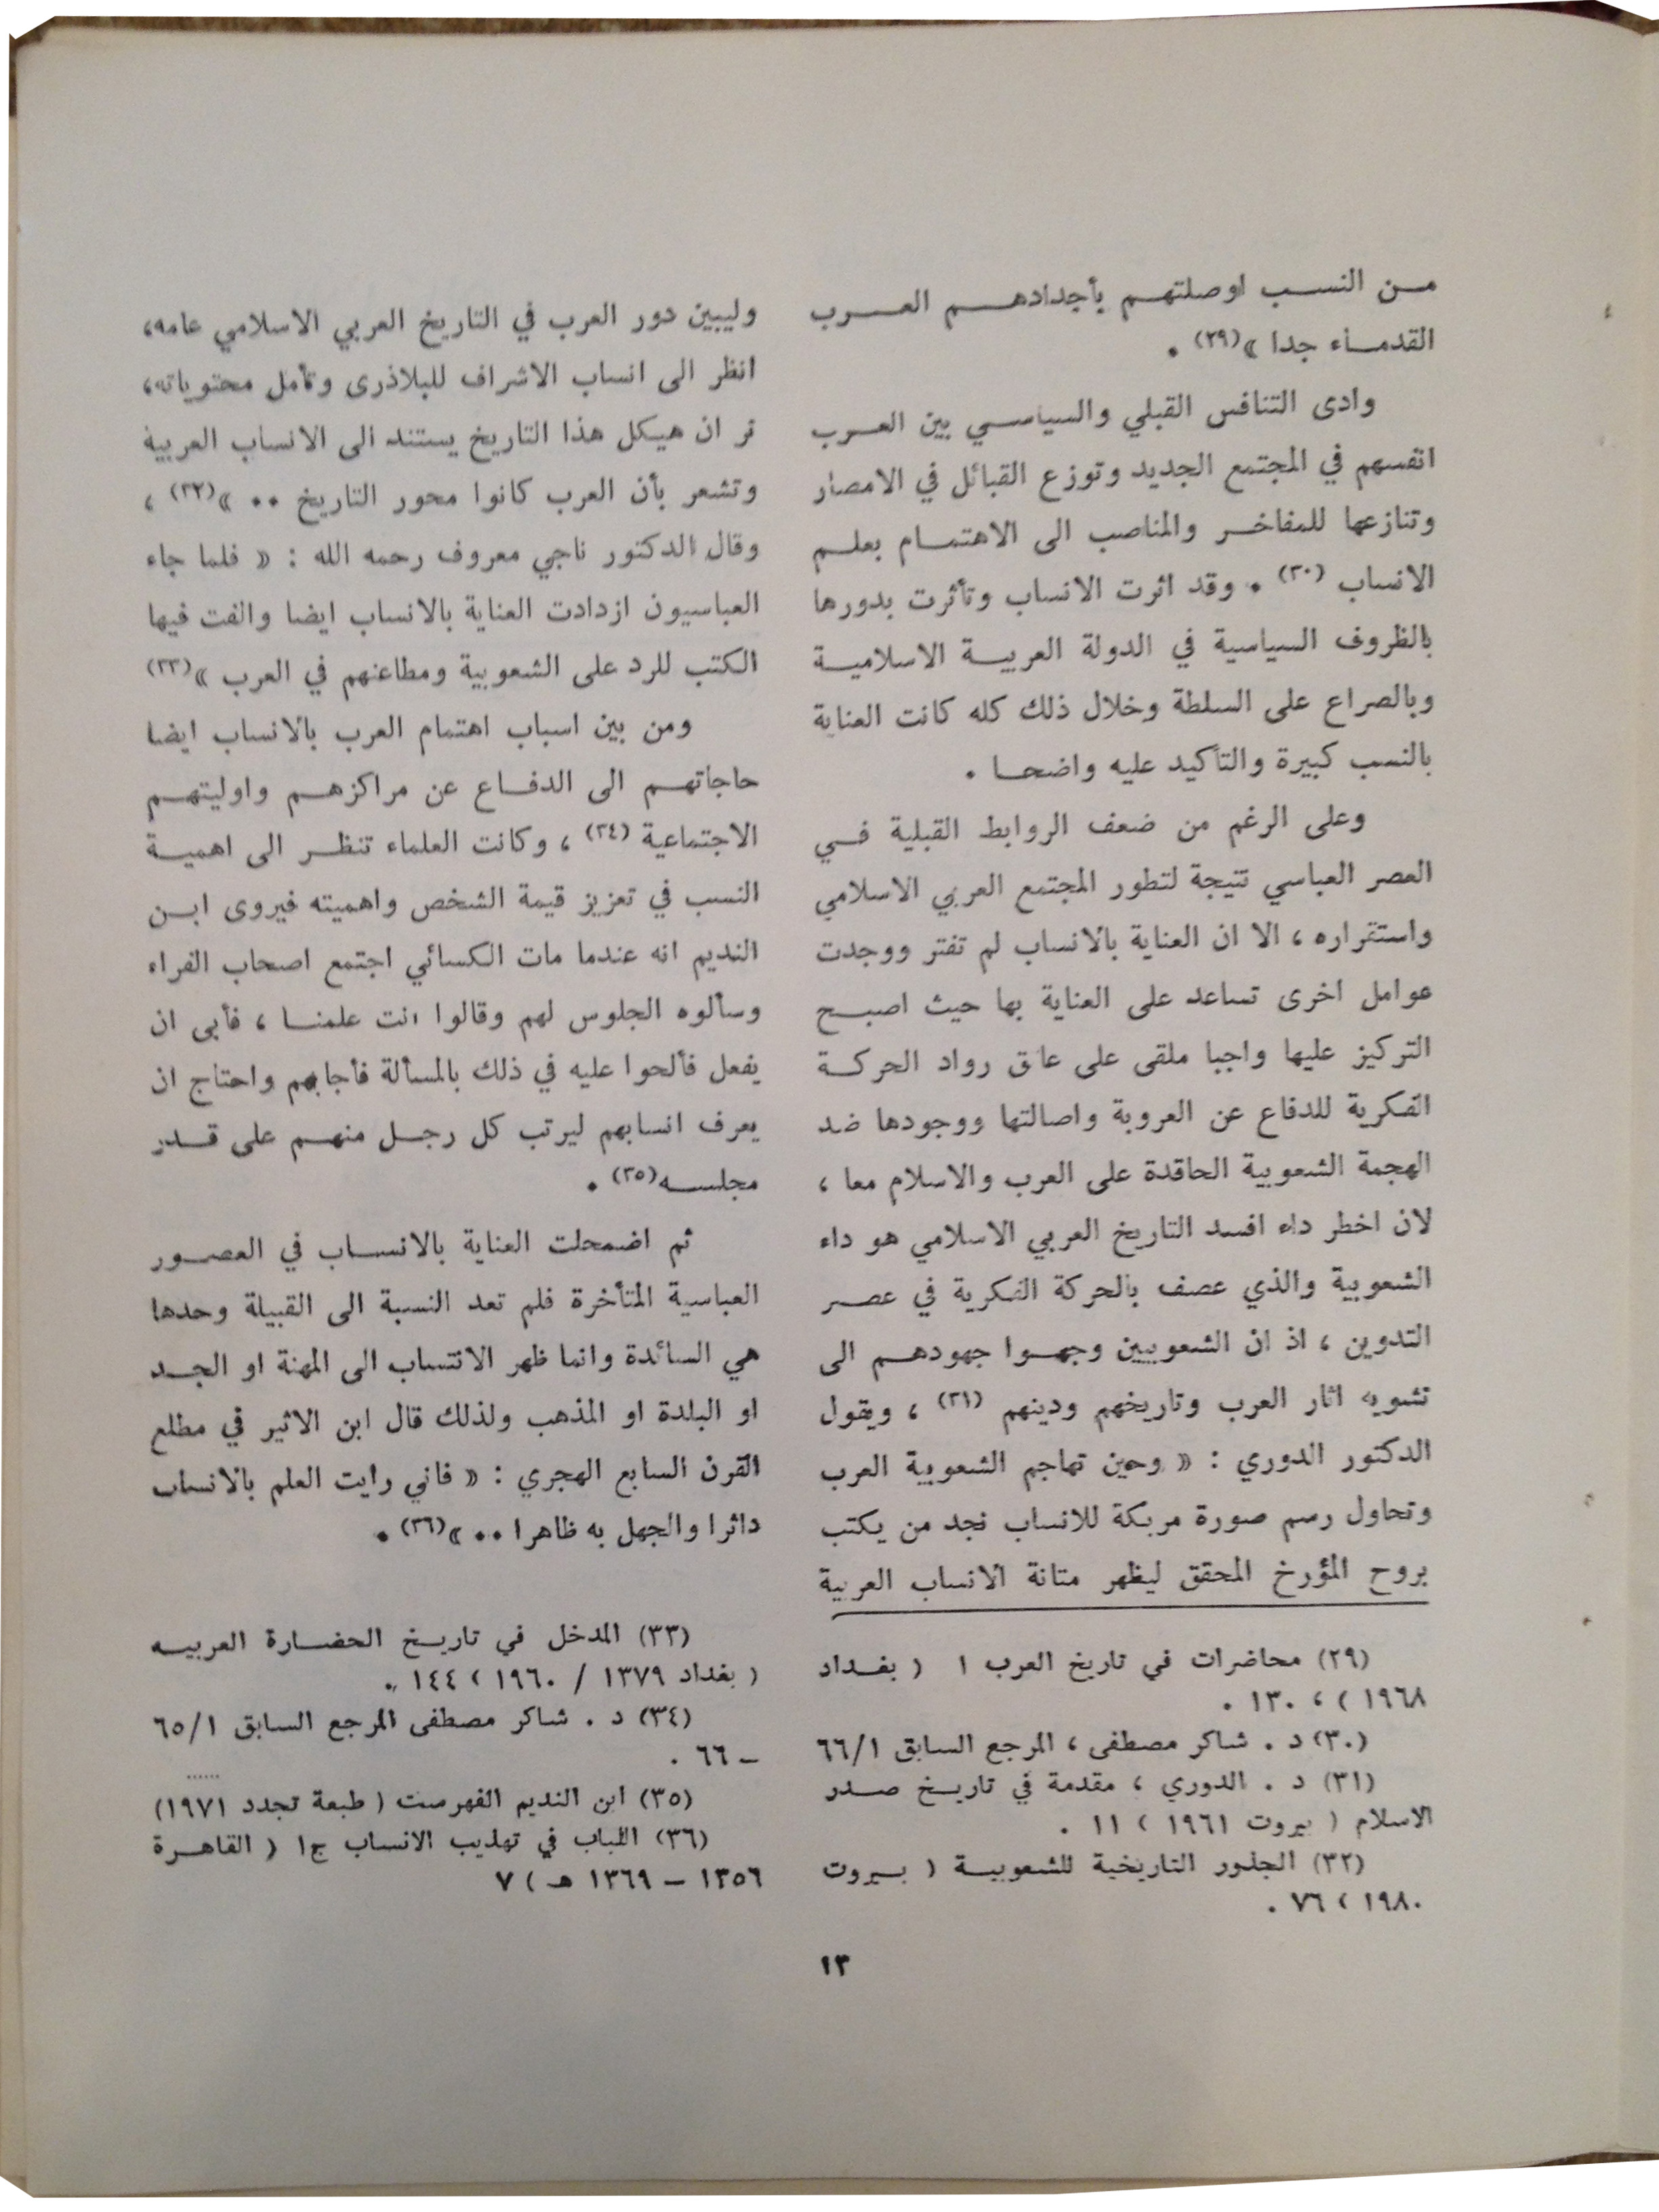 مــن النســب اوصلتهــم بأجدادهــم العــرب
القدمــاء جدا »(٢٩) .
وادى التنافس القبلي والسياســي بين العــرب
انفسهم في المجتمع الجديد وتوزع القبائل في الامصار
وتنازعها للمفاخــر والمناصب الى الاهتمــام بعلــم
الانساب (٣٠) . وقد اثرت الانساب وتأثرت بدورها
بالظروف السياسية في الدولة العربيــة الاسلاميــة
وبالصراع على السلطة وخلال ذلك كله كانت العناية
بالنسب كبيرة والتأكيد عليه واضحــا .
وعلى الرغم من ضعف الروابط القبلية فــي
العصر العباسي نتيجة لتطور المجتمع العربي الاسلامي
واستقراره ، الا ان العناية بالانساب لم تفتر ووجدت
عوامل اخرى تساعد على العناية بها حيث اصبــح
التركيز عليها واجبا ملقى على عاتق رواد الحركــة
الفكرية للدفاع عن العروبة واصالتها ووجودها ضد
الهجمة الشعوبية الحاقدة على العرب والاسلام معا ،
لان اخطر داء افسد التاريخ العربي الاسلامي هو داء
الشعوبية والذي عصف بالحركة الفكرية في عصــر
التدوين ، اذ ان الشعوبيين وجهــوا جهودهــم الى
تشويه اثار العرب وتاريخهم ودينهم (٣١) ، ويقول
الدكتور الدوري : « وحين تهاجم الشعوبية العرب
وتحاول رسم صورة مربكة للانساب نجد من يكتب
بروح المؤرخ المحقق ليظهر متانة الانساب العربية
(٢٩) محاضرات في تاريخ العرب ١ ( بغــداد
١٩٦٨ ) ، ١٣٠ .
(٣٠) د . شاكر مصطفى ، المرجع السابق ٦٦/١
(٣١) د . الدوري ، مقدمة في تاريــخ صــدر
الاسلام ( بيروت ١٩٦١ ) ١١ .
(٣٢) الجذور التاريخية للشعوبيــة ( بــيروت
١٩٨٠ ) ٧٦ .
وليبين دور العرب في التاريخ العربي الاسلامي عامه،
انظر الى انساب الاشراف للبلاذرى وتأمل محتوياته،
تر ان هيكل هذا التاريخ يستند الى الانساب العربية
وتشعر بأن العرب كانوا محور التاريخ .. »(٣٢) ،
وقال الدكتور ناجي معروف رحمه الله : « فلما جاء
العباسيون ازدادت العناية بالانساب ايضا والفت فيها
الكتب للرد على الشعوبية ومطاعنهم في العرب »(٣٣)
ومن بين اسباب اهتمام العرب بالانساب ايضا
حاجاتهــم الى الدفــاع عن مراكزهــم واوليتهــم
الاجتماعية (٣٤) ، وكانت العلماء تنظــر الى اهميــة
النسب في تعزيز قيمة الشخص واهميته فيروى ابــن
النديم انه عندما مات الكسائي اجتمع اصحاب الفراء
وسألوه الجلوس لهم وقالوا انت علمنــا ، فأبى ان
يفعل فألحوا عليه في ذلك بالمسألة فأجابهم واحتاج ان
يعرف انسابهم ليرتب كل رجــل منهــم على قــدر
مجلســه(٣٥) .
ثم اضمحلت العناية بالانســاب في العصــور
العباسية المتأخرة فلم تعد النسبة الى القبيلة وحدها
هي السائدة وانما ظهر الانتساب الى المهنة او الجــد
او البلدة او المذهب ولذلك قال ابن الاثير في مطلع
القرن السابع الهجري : « فاني رايت العلم بالانساب
داثرا والجهل به ظاهرا .. »(٣٦) .
(٣٣) المدخل في تاريــخ الحضــارة العربيــه
( بغداد ١٣٧٩ / ١٩٦٠ ) ١٤٤ .
(٣٤) د . شاكر مصطفى المرجع السابق ٦٥/١
ــ ٦٦ .
(٣٥) ابن النديم الفهرست ( طبعة تجدد ١٩٧١)
(٣٦) اللباب في تهذيب الانساب ج١ ( القاهــرة
١٣٥٦ ــ ١٣٦٩ هـ ) ٧
١٣